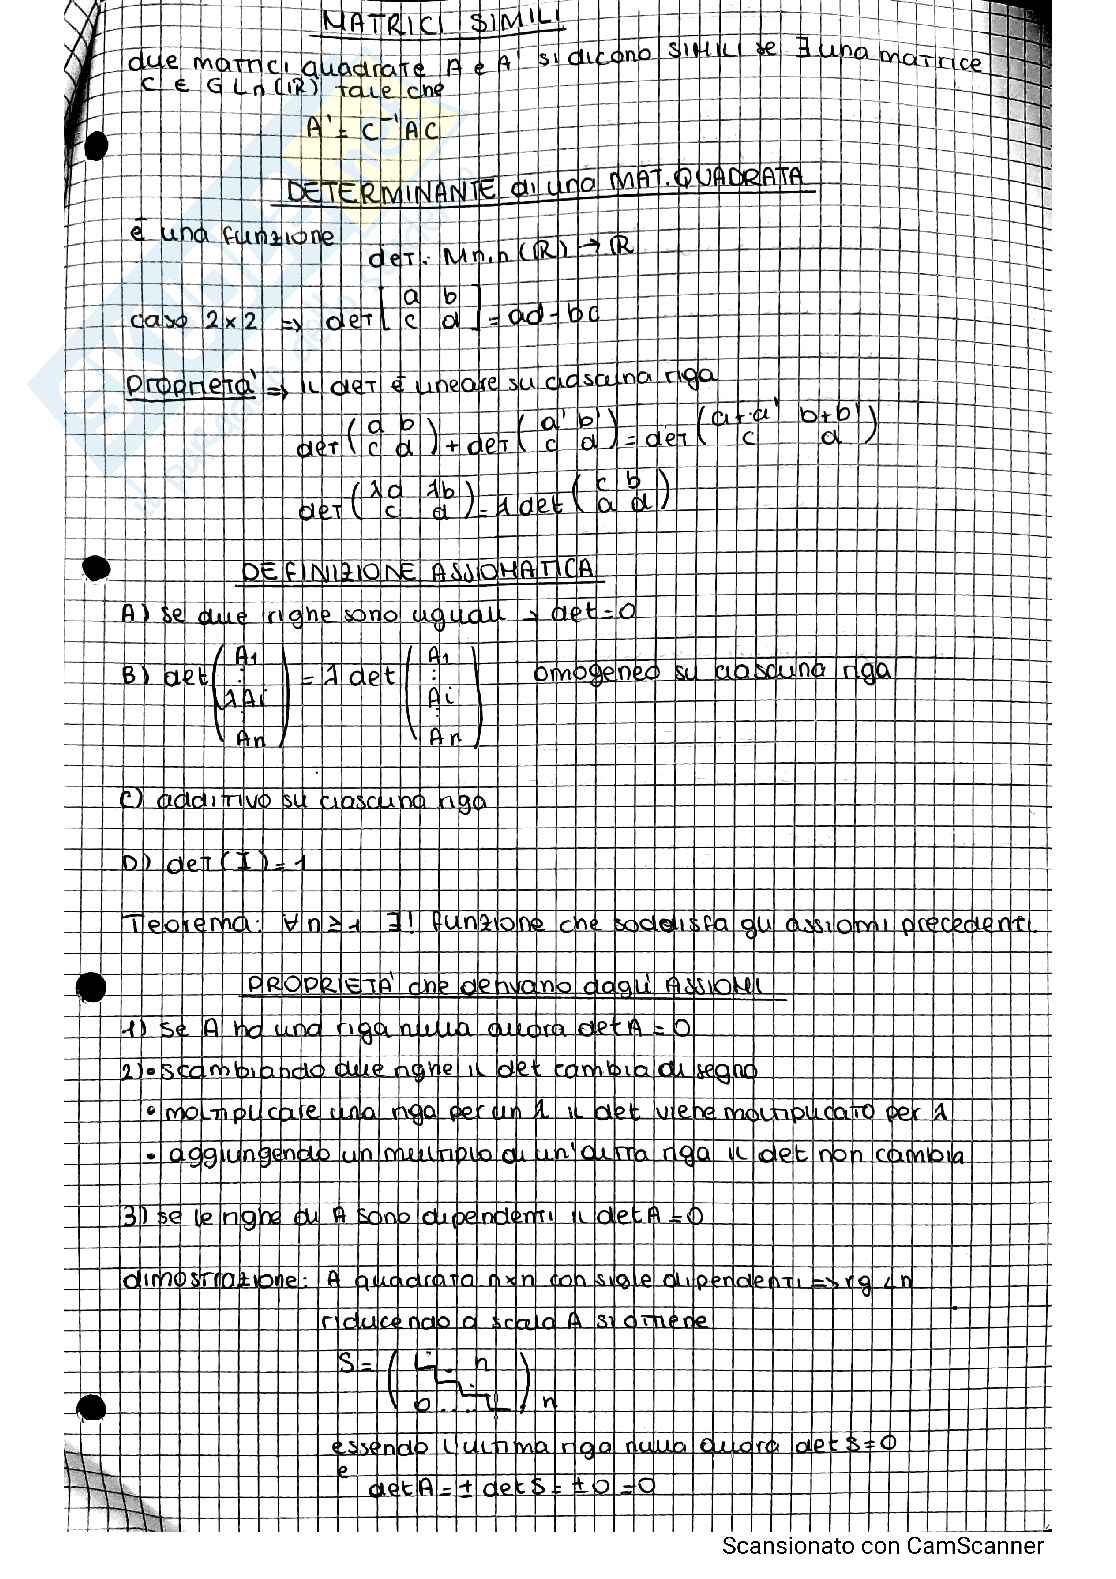 MATRICI SIMILI
due matrici quadrate A e A' si dicono SIMILI se ∃ una matrice
C ∈ GLn(ℝ) tale che
A' = C⁻¹AC
DETERMINANTE di una MAT. QUADRATA
è una funzione
det: Mn,n(ℝ) → ℝ
caso 2×2 => det [a b
c d] = ad - bc
Proprietà => il det è lineare su ciascuna riga
det (a b
c d) + det (a' b'
c d) = det (a+a' b+b'
c d)
det (λa λb
c d) = λ det (c b
a d)
DEFINIZIONE ASSIOMATICA
A) se due righe sono uguali → det=0
B) det (A1
⋮
λAi
⋮
An) = λ det (A1
⋮
Ai
⋮
An) omogeneo su ciascuna riga
C) additivo su ciascuna riga
D) det(I)=1
Teorema: ∀ n≥1 ∃! funzione che soddisfa gli assiomi precedenti.
PROPRIETÀ che derivano dagli ASSIOMI
1) se A ha una riga nulla allora det A = 0
2) • scambiando due righe il det cambia di segno
• moltiplicare una riga per un λ il det viene moltiplicato per λ
• aggiungendo un multiplo di un'altra riga il det non cambia
3) se le righe di A sono dipendenti il det A = 0
dimostrazione: A quadrata n×n con righe dipendenti => rg < n
riducendo a scala A si ottiene
S = ( n
0 ... ) n
essendo l'ultima riga nulla allora det S=0
e
det A = ± det S = ± 0 = 0
Scansionato con CamScanner